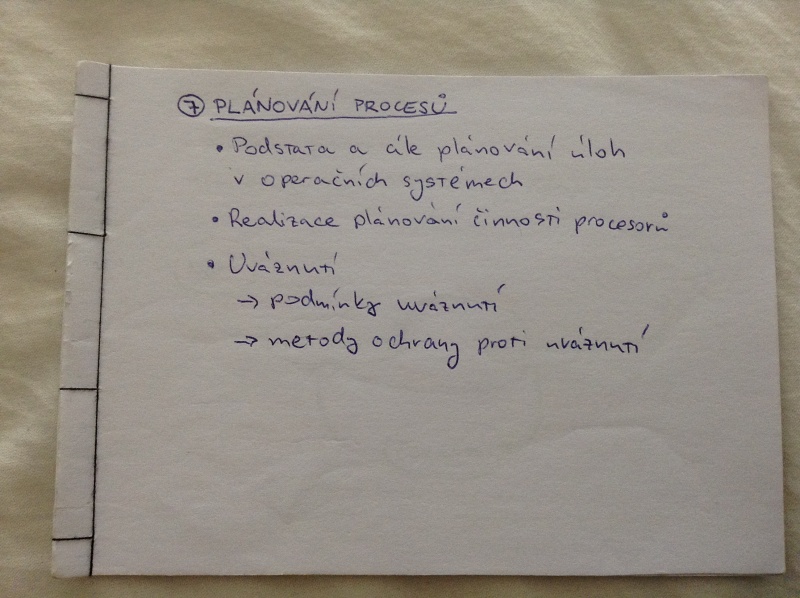 ⑦ PLÁNOVÁNÍ PROCESŮ
• Podstata a cíle plánování úloh
v operačních systémech
• Realizace plánování činnosti procesorů
• Uváznutí
→ podmínky uváznutí
→ metody ochrany proti uváznutí